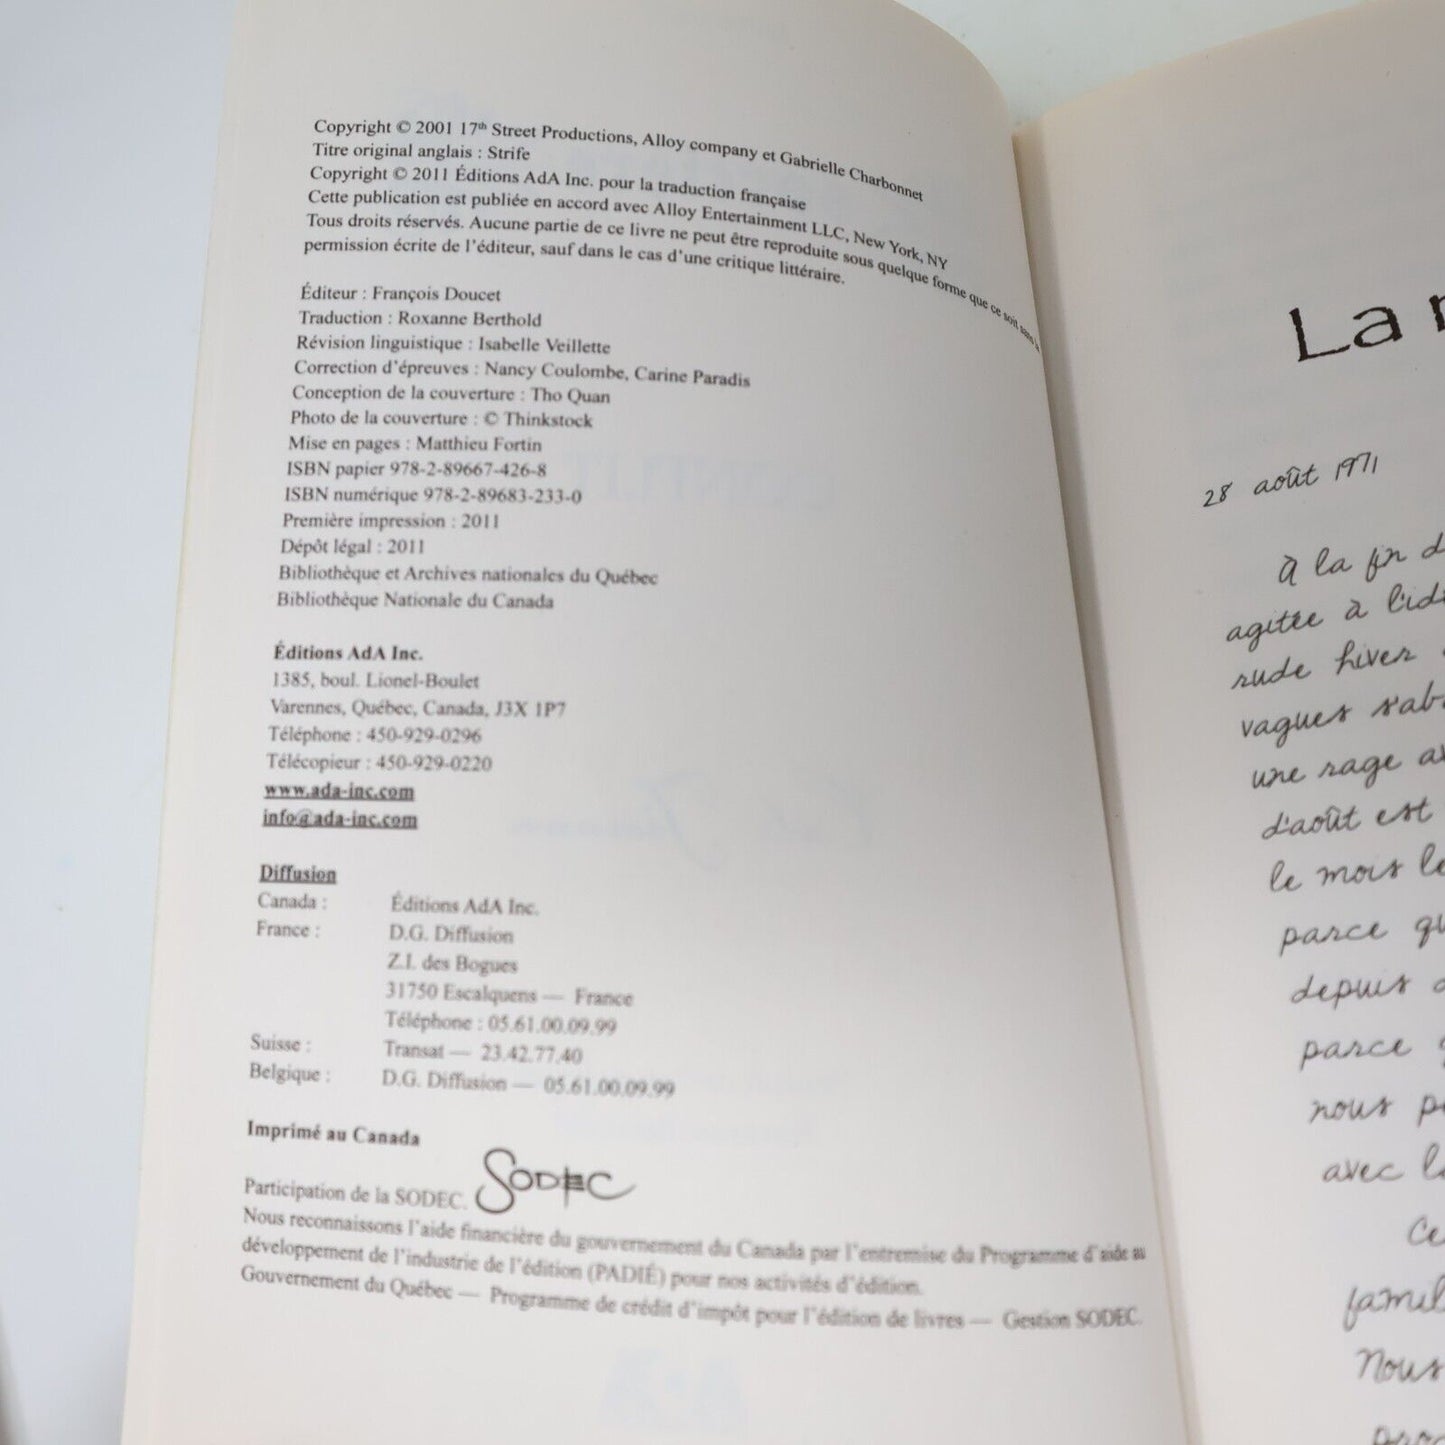 Copyright © 2001 17th Street Productions, Alloy company et Gabrielle Charbonnet
Titre original anglais : Strife
Copyright © 2011 Éditions AdA Inc. pour la traduction française
Cette publication est publiée en accord avec Alloy Entertainment LLC, New York, NY
Tous droits réservés. Aucune partie de ce livre ne peut être reproduite sous quelque forme que ce soit sans la
permission écrite de l'éditeur, sauf dans le cas d'une critique littéraire.
Éditeur : François Doucet
Traduction : Roxanne Berthold
Révision linguistique : Isabelle Veillette
Correction d'épreuves : Nancy Coulombe, Carine Paradis
Conception de la couverture : Tho Quan
Photo de la couverture : © Thinkstock
Mise en pages : Matthieu Fortin
ISBN papier 978-2-89667-426-8
ISBN numérique 978-2-89683-233-0
Première impression : 2011
Dépôt légal : 2011
Bibliothèque et Archives nationales du Québec
Bibliothèque Nationale du Canada
Éditions AdA Inc.
1385, boul. Lionel-Boulet
Varennes, Québec, Canada, J3X 1P7
Téléphone : 450-929-0296
Télécopieur : 450-929-0220
www.ada-inc.com
info@ada-inc.com
Diffusion
Canada : Éditions AdA Inc.
France : D.G. Diffusion
Z.I. des Bogues
31750 Escalquens — France
Téléphone : 05.61.00.09.99
Suisse : Transat — 23.42.77.40
Belgique : D.G. Diffusion — 05.61.00.09.99
Imprimé au Canada
Participation de la SODEC. SODEC
Nous reconnaissons l'aide financière du gouvernement du Canada par l'entremise du Programme d'aide au
développement de l'industrie de l'édition (PADIÉ) pour nos activités d'édition.
Gouvernement du Québec — Programme de crédit d'impôt pour l'édition de livres — Gestion SODEC.
La
28 août 1971
À la fin
agitée à
rude hiver
vagues
une rage
d'août est
le mois
parce
depuis
parce
nous
avec
Ce
Nous